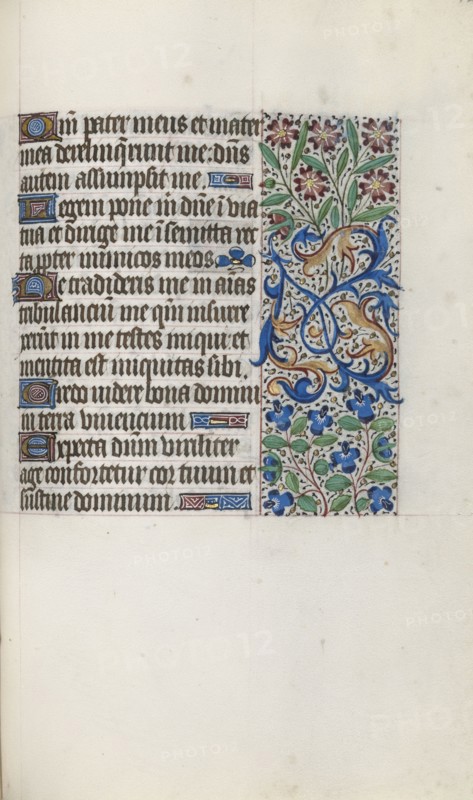 Qm̄ pater meus et mater
mea derelinq̄runt me: dn̄s
autem assumpsit me.
Legem pone m̄ dn̄e ī via
tua et dirige me ī semitta rec
ta ꝓpter inimicos meos
Ne tradideris me in aīas
tribulanciū me qm̄ insurre
xerūt in me testes iniqui: et
mentita est iniquitas sibi.
Credo videre bona domini
in terra viuencium
Expecta dn̄m viriliter
age confortetur cor tuum et
sustine dominum.
PHOTO12